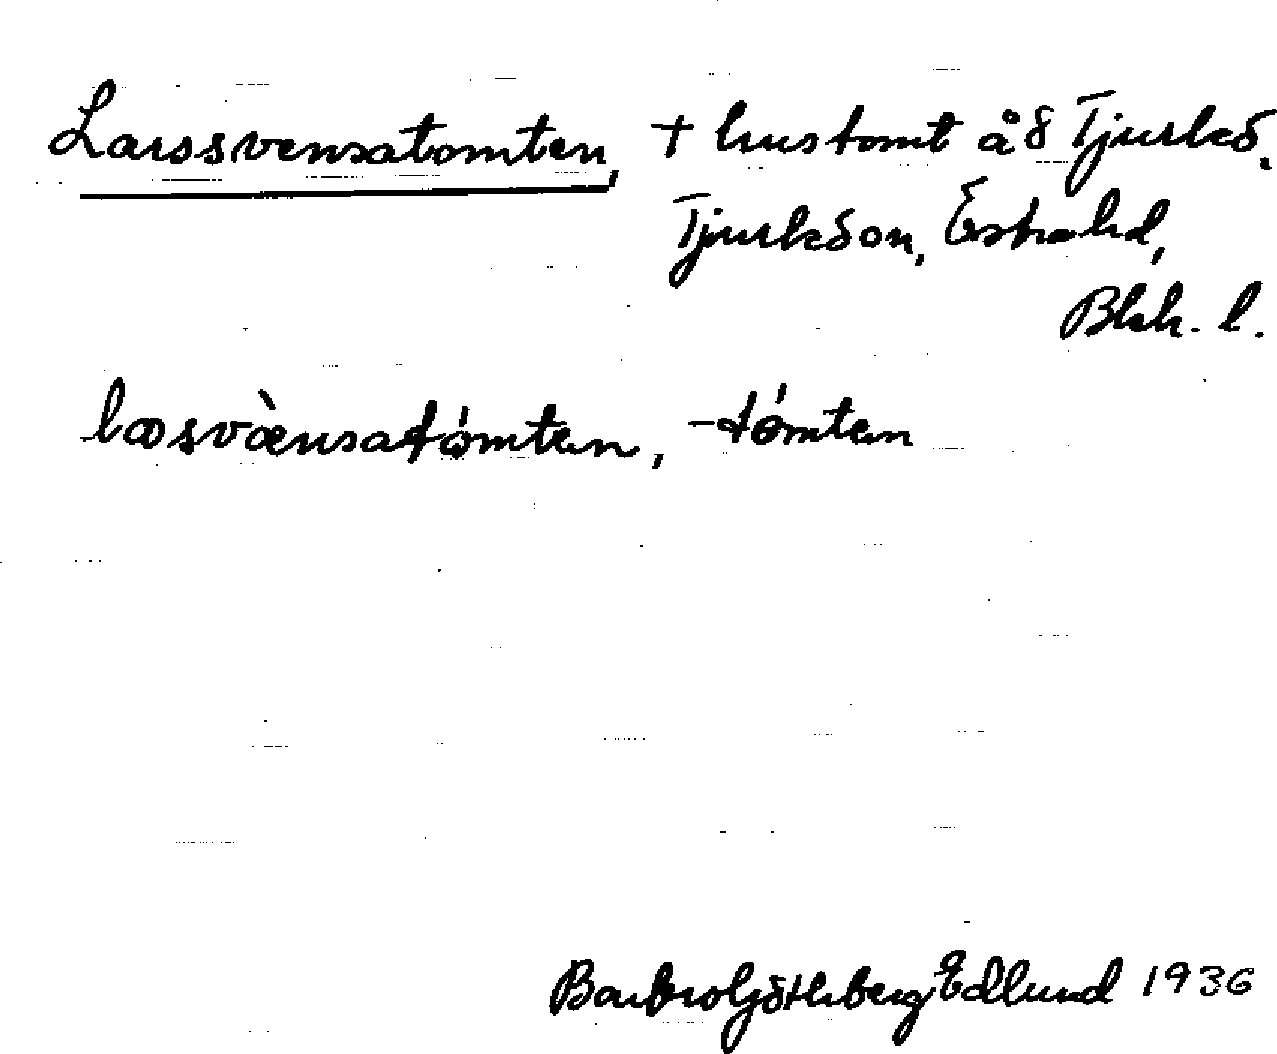 Larssvensatomten, + hustomt å 8 Tjurkö,
Tjurköson, Östrahd,
Blek. l.
læsvæ̀nsatómten, -tómten
Barbro Götherberg Edlund 1936